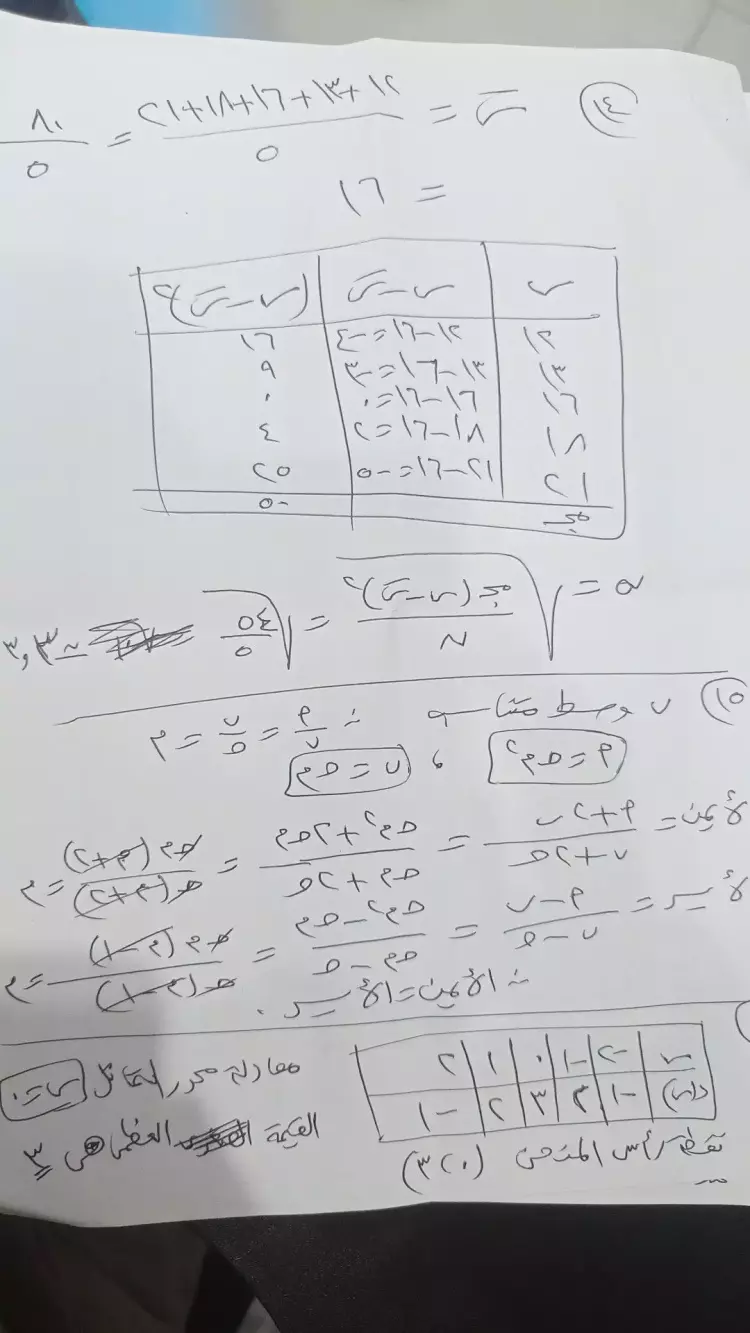 ١٤ س̄ = (١٢ + ١٣ + ١٦ + ١٨ + ٢١) / ٥ = ٨٠ / ٥
= ١٦
س | س - س̄ | (س - س̄)٢
١٢ | ١٢ - ١٦ = -٤ | ١٦
١٣ | ١٣ - ١٦ = -٣ | ٩
١٦ | ١٦ - ١٦ = ٠ | ٠
١٨ | ١٨ - ١٦ = ٢ | ٤
٢١ | ٢١ - ١٦ = -٥ | ٢٥
مجـ
σ = √(مجـ (س - س̄)٢ / ن) = √(٥٤ / ٥) ≃ ٣,٣
١٥ ب وسط متناسب ∴ م = ب/جـ = أ/ب
أ = جـ م٢ ، ب = جـ م
الأيمن = (أ + ٢ب) / (ب + ٢جـ) = (جـ م٢ + ٢جـ م) / (جـ م + ٢جـ) = جـ م (م + ٢) / جـ (م + ٢) = م
الأيسر = (أ - ب) / (ب - جـ) = (جـ م٢ - جـ م) / (جـ م - جـ) = جـ م (م - ١) / جـ (م - ١) = م
∴ الأيمن = الأيسر .
س | -٢ | -١ | ٠ | ١ | ٢
د(س) | -١ | ٢ | ٣ | ٢ | -١
معادلة محور التماثل س = ٠
نقطة رأس المنحنى (٠ ، ٣)
القيمة العظمى هى ٣